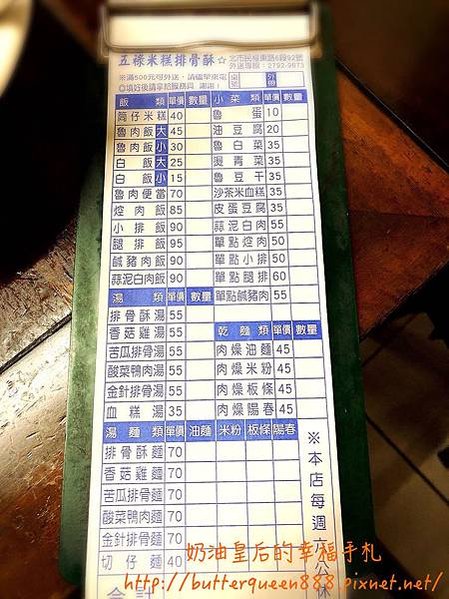 五祿米糕排骨酥☆
北市民權東路6段92號
外送專線：2792-9673
※滿500元可外送，請儘早來電
◎填好後請拿給服務員 謝謝！
桌號
外帶
飯類 單價 數量
筒仔米糕 40
魯肉飯 大 45
魯肉飯 小 30
白飯 大 25
白飯 小 15
魯肉便當 70
焢肉飯 85
小排飯 90
腿排飯 95
鹹豬肉飯 90
蒜泥白肉飯 90
小菜類 單價 數量
魯蛋 10
油豆腐 20
魯白菜 35
燙青菜 35
魯豆干 35
沙茶米血糕 35
皮蛋豆腐 35
蒜泥白肉 55
單點焢肉 50
單點小排 50
單點腿排 60
單點鹹豬肉 55
湯類 單價 數量
排骨酥湯 55
香菇雞湯 55
苦瓜排骨湯 55
酸菜鴨肉湯 55
金針排骨湯 55
血糕湯 35
乾麵類 單價 數量
肉燥油麵 45
肉燥米粉 45
肉燥板條 45
肉燥陽春 45
湯麵類 單價 油麵 米粉 板條 陽春
排骨酥麵 70
香菇雞麵 70
苦瓜排骨麵 70
酸菜鴨肉麵 70
金針排骨麵 70
切仔麵 40
合計
※本店每週六公休
奶油皇后的幸福手札
http://butterqueen888.pixnet.net/